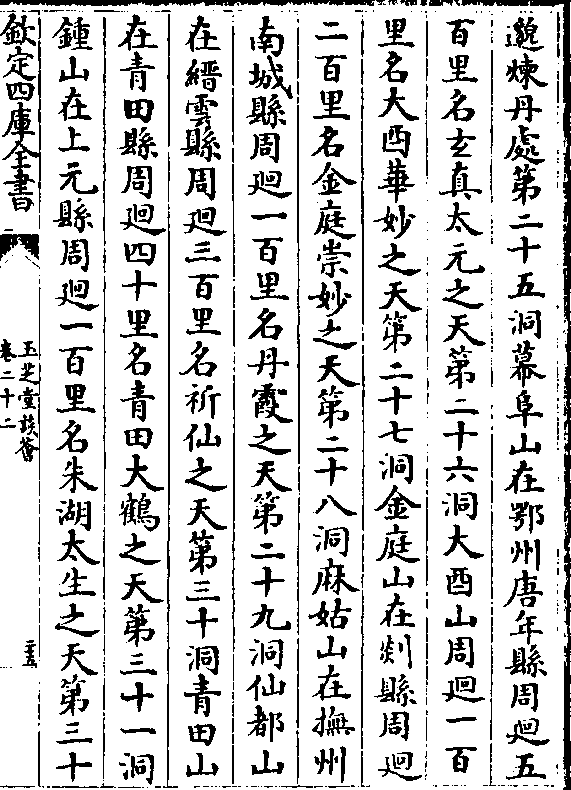 邈煉丹處第二十五洞幕阜山在鄂州唐年縣周廻五
百里名玄真太元之天第二十六洞大酉山周廻一百
里名大酉華妙之天第二十七洞金庭山在剡縣周廻
二百里名金庭崇妙之天第二十八洞麻姑山在撫州
南城縣周廻一百里名丹霞之天第二十九洞仙都山
在縉雲縣周廻三百里名祈仙之天第三十洞青田山
在青田縣周廻四十里名青田大鶴之天第三十一洞
鍾山在上元縣周廻一百里名朱湖太生之天第三十
欽定四庫全書
玉芝堂談薈
卷二十二
二五